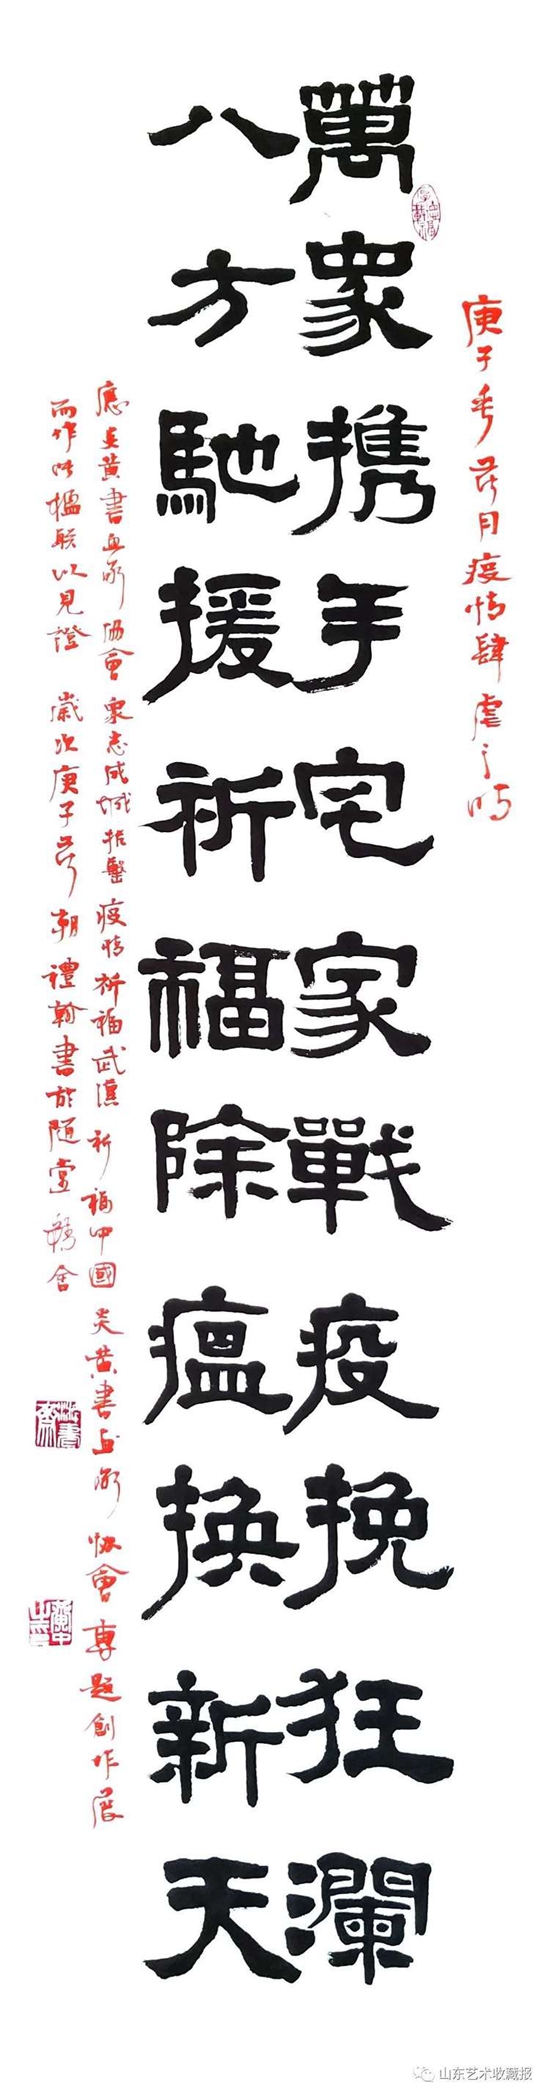 庚子年花月疫情肆虐之时
萬眾携手宅家戰疫挽狂瀾
八方馳援祈福除瘟換新天
應炎黃書画家協會眾志成城抗擊疫情祈福武漢祈福中國炎黃書画家协會專題創作展
而作此楹联以見證 歲次庚子 朝禮翰書於随堂
山东艺术收藏报